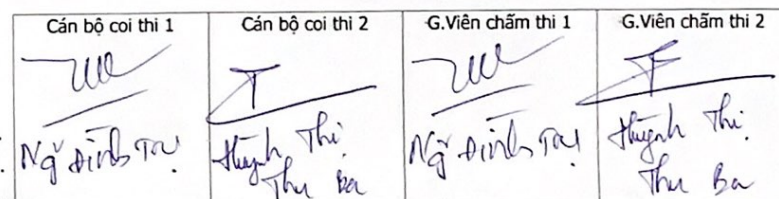 Cán bộ coi thi 1
Cán bộ coi thi 2
G.Viên chấm thi 1
G.Viên chấm thi 2
Ng̃ Đình Trụ
Huỳnh Thị
Thu Ba
Ng̃ Đình Trụ
Huỳnh Thị
Thu Ba